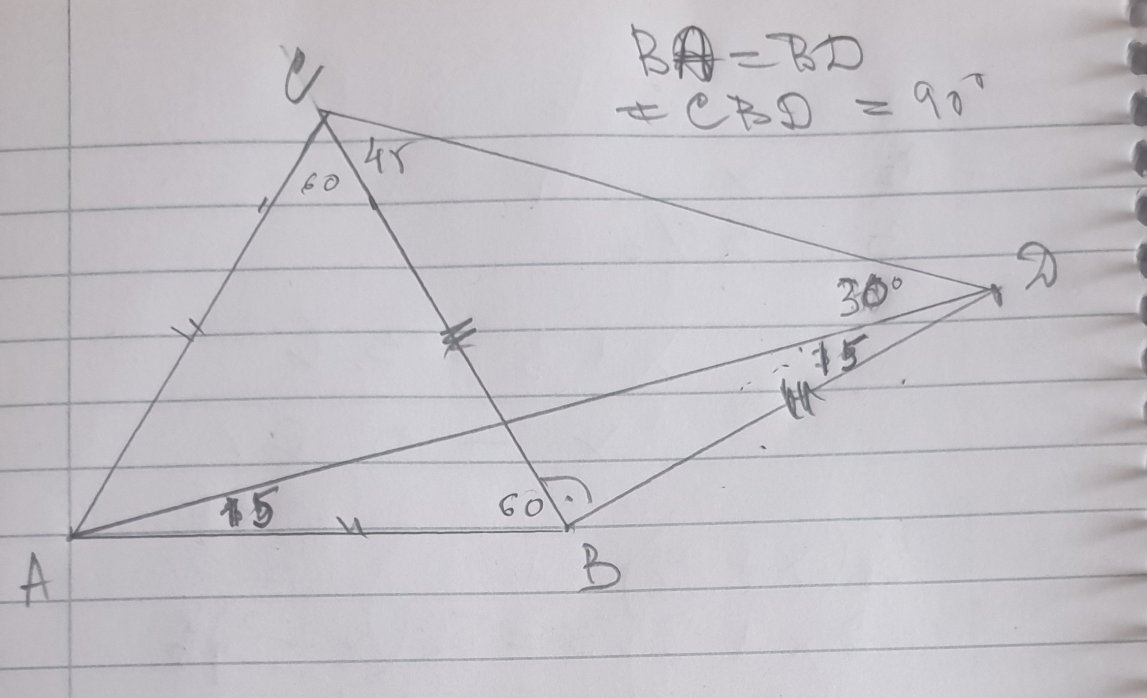 BA = BD
∢ CBD = 90°
C
45
60
D
30°
15
15
60
A
B